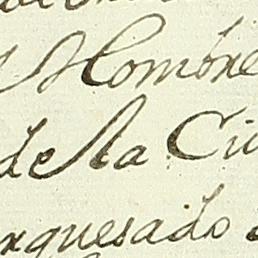 Hombre
de la Ciu
rquesado